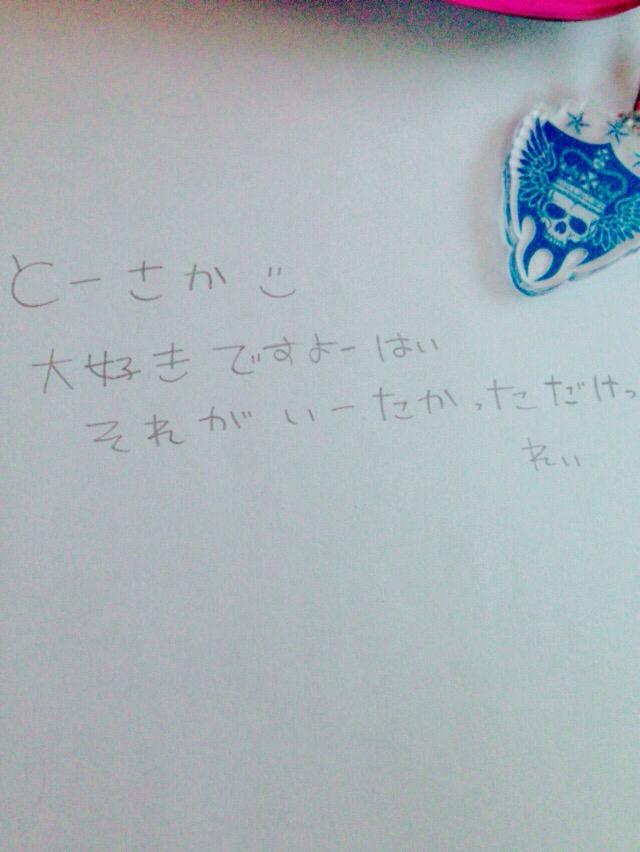 とーさか
大好きですよーはい
それがいーたかっただけっ
れい